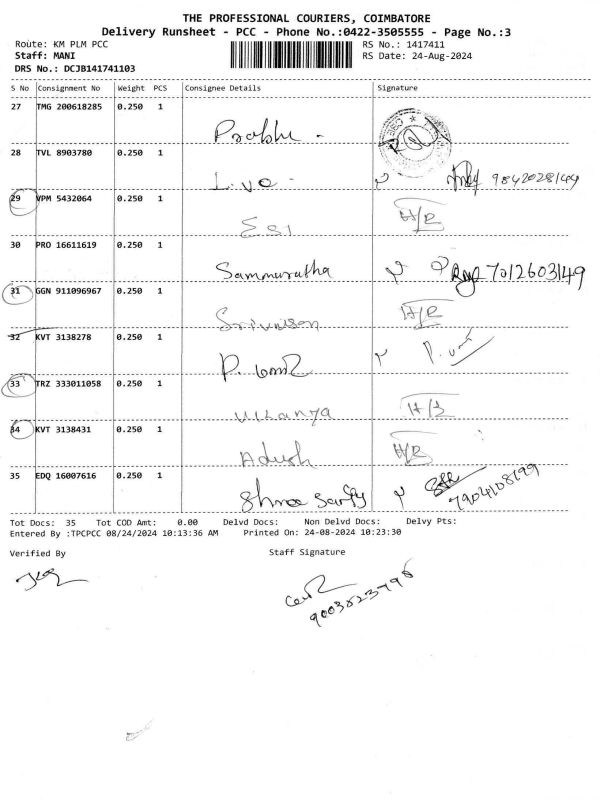 THE PROFESSIONAL COURIERS, COIMBATORE
Delivery Runsheet - PCC - Phone No.:0422-3505555 - Page No.:3
Route: KM PLM PCC RS No.: 1417411
Staff: MANI RS Date: 24-Aug-2024
DRS No.: DCJB141741103
S No Consignment No Weight PCS Consignee Details Signature
27 TMG 200618285 0.250 1
Prabhu -
28 TVL 8903780 0.250 1
Live - 9842028144
29 VPM 5432064 0.250 1
ESI H/R
30 PRO 16611619 0.250 1
Sammuratha 7012603149
31 GGN 911096967 0.250 1
Srivason H/R
32 KVT 3138278 0.250 1
P.
33 TRZ 333011058 0.250 1
34 KVT 3138431 0.250 1
Adush H/R
35 EDQ 16007616 0.250 1
Shree 7904108199
Tot Docs: 35 Tot COD Amt: 0.00 Delvd Docs: Non Delvd Docs: Delvy Pts:
Entered By :TPCPCC 08/24/2024 10:13:36 AM Printed On: 24-08-2024 10:23:30
Verified By Staff Signature
9003823796